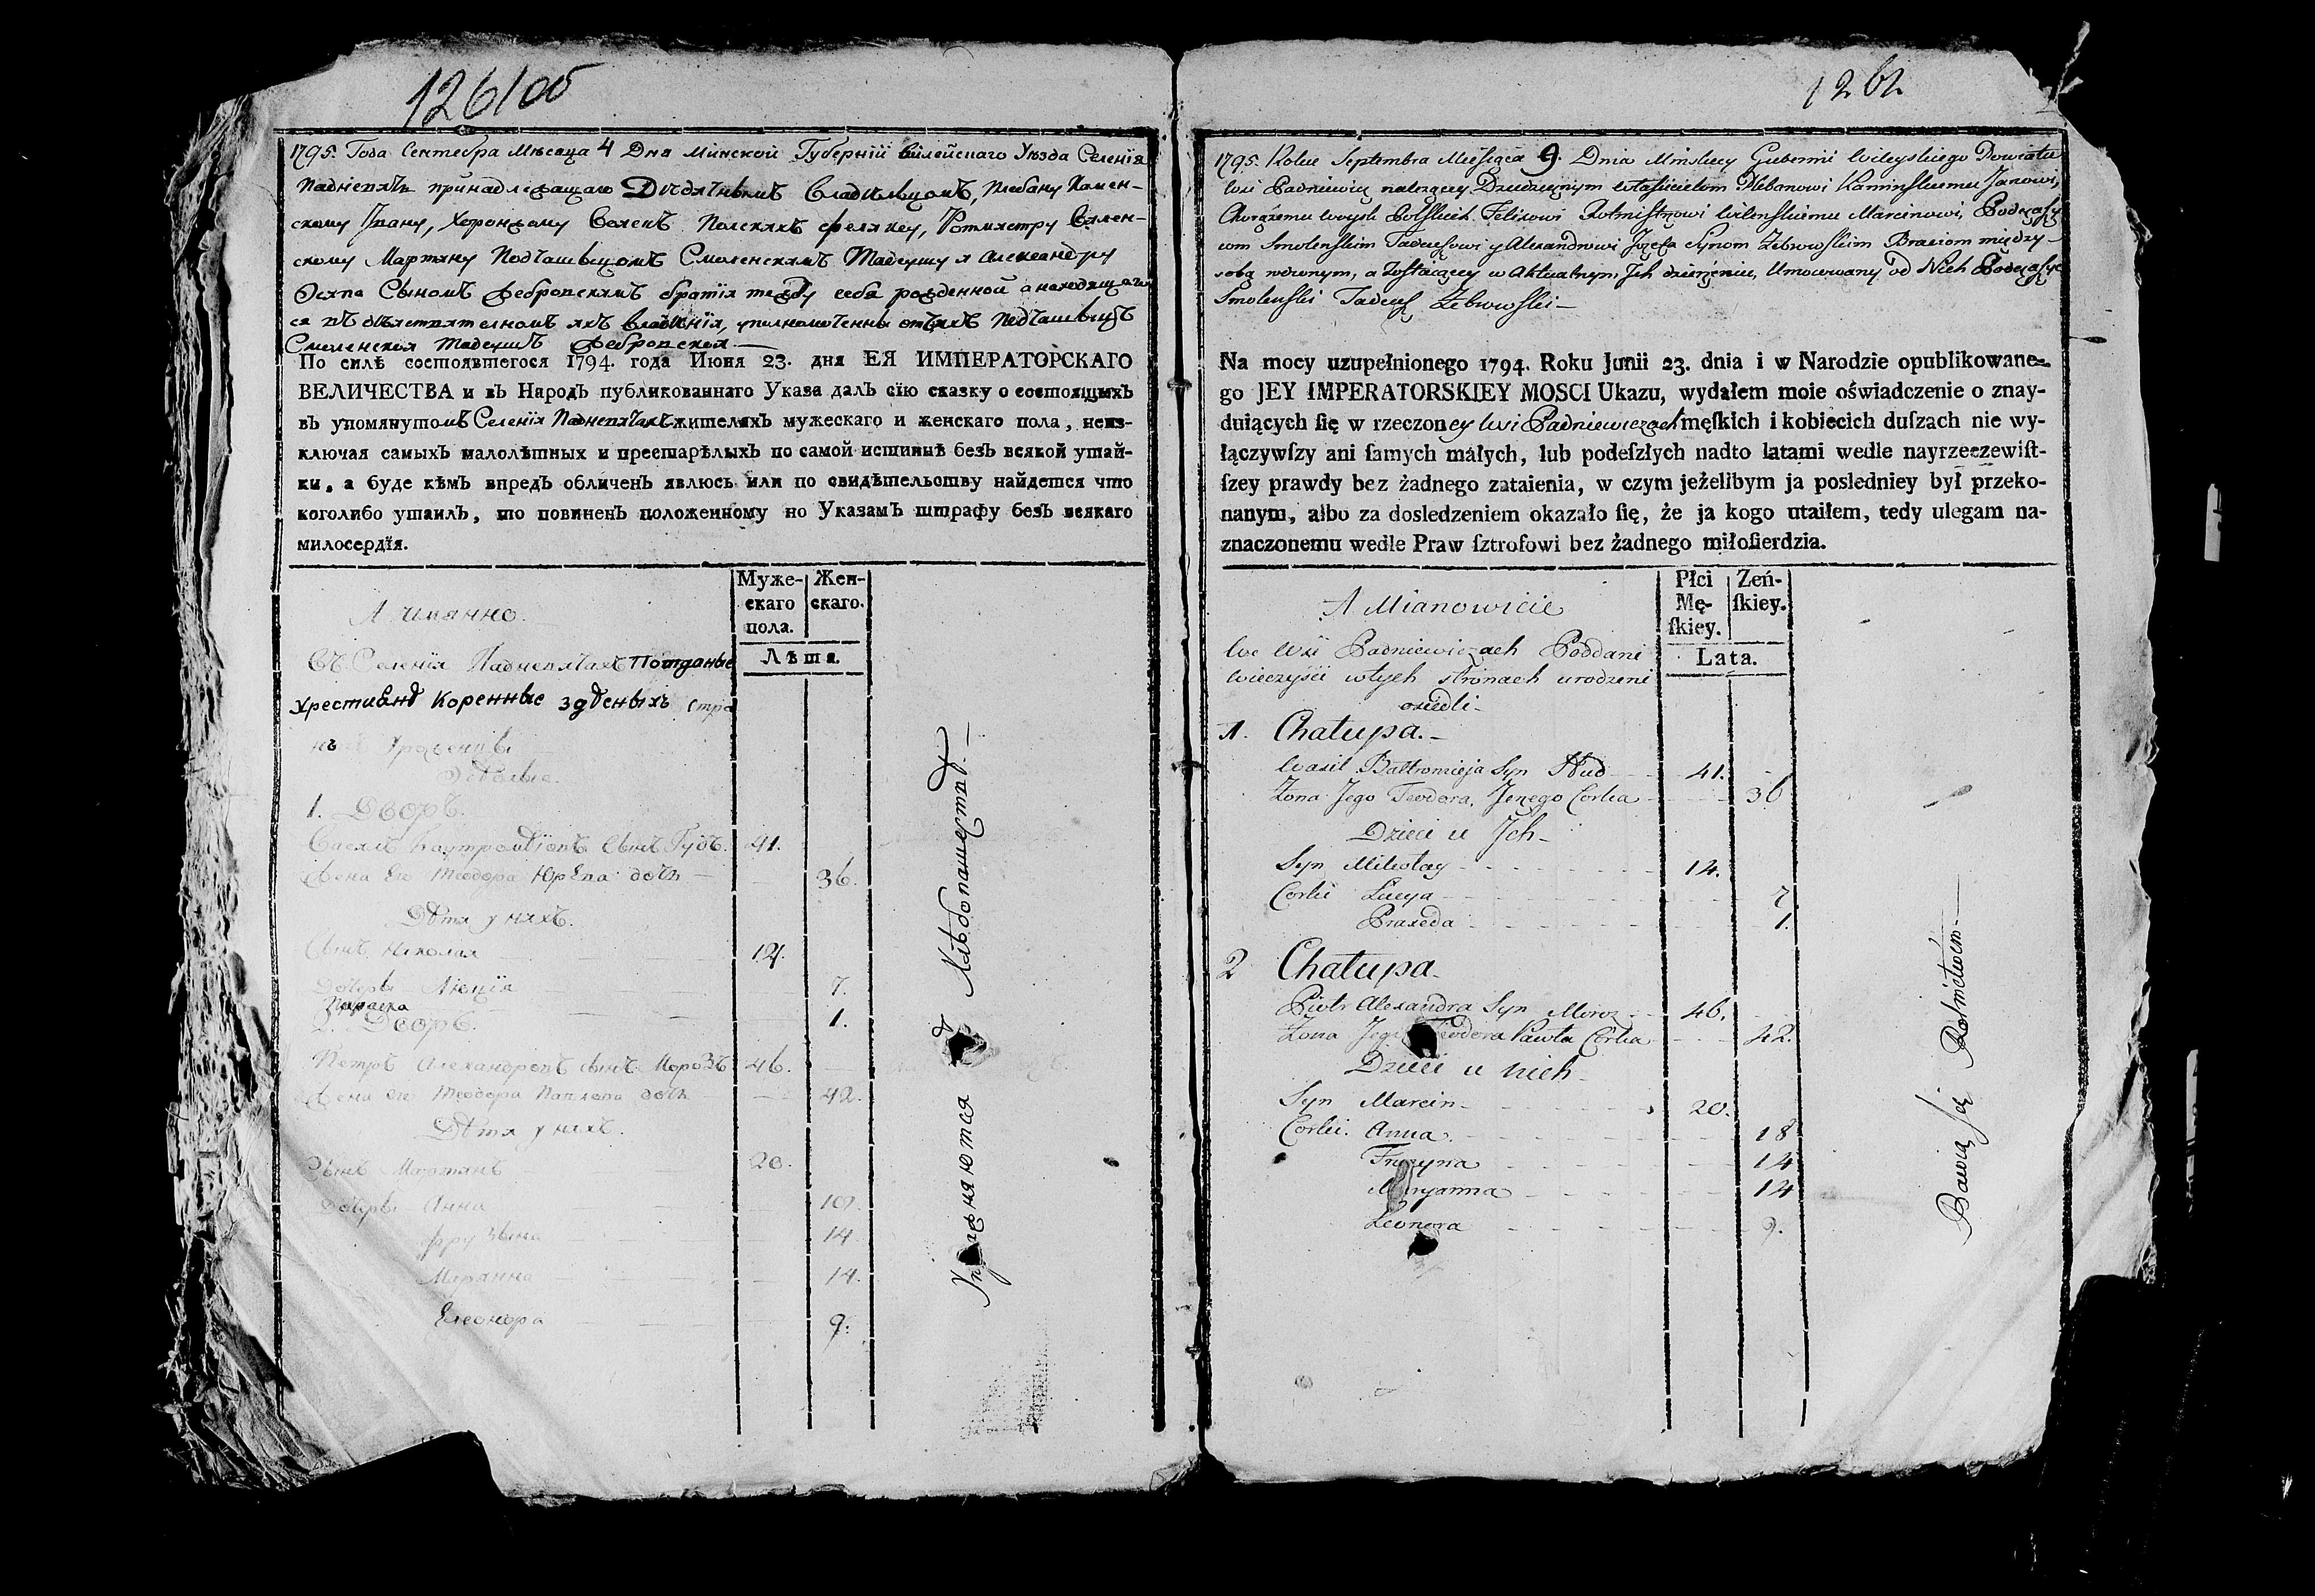 1261об
1795. Года Сентебра Мѣсеца 4 Дня Минской Губернїй Вилейскаго Уѣзда Селенїя
принадлежащаго Дѣдичнымъ Владельцомъ, Плебану Камен-
скому Ивану, Хоронжому Войскъ Полскихъ Феликсу, Ротмистру Вилен-
скому Мартину Подчашыцомъ Смоленскимъ Тадеушу и Александру
Осипа Сыномъ Жебровскимъ братїя между себя рожденной а находящаго
ся въ их владѣнїя, отъ ихъ Подчашыцъ
Смоленской Тадеушъ Жебровской
По силѣ состоявшегося 1794. года Июня 23. дня ЕЯ ИМПЕРАТОРСКАГО
ВЕЛИЧЕСТВА и въ Народъ публикованнаго Указа далъ сїю сказку о состоящихъ
въ упомянутомъ Селенїя жителяхъ мужескаго и женскаго пола, неиз-
ключая самыхъ малолѣтныхъ и престарѣлыхъ по самой истиннѣ безъ всякой утай-
ки, а буде кѣмъ впредь обличенъ явлюсь или по свидѣтельству найдется что
коголибо утаилъ, то повиненъ положенному по Указамъ штрафу безъ всякаго
милосердїя.
Муже-
скаго
пола.
Жен-
скаго.
Лѣта.
А имянно.
Въ Селенїя Подданые
Хрестиянѣ Коренные здѣшныхъ стра
нъ Уроженцы
Осѣлые.
1. Дворъ.
Василь Баутромѣювъ Сынъ Гудъ. 41.
Жена Его Теодора Юрева дочь — 36.
Дѣти у нихъ.
Сынъ Николай 14.
Дочеры Люцїя 7.
Параска 1.
2. Дворъ.
Петръ Александровъ сынъ Морозъ 46.
Жена его Теодора Павлова дочь 42.
Дѣти у нихъ.
Сынъ Мартинъ 20.
Дочеры Анна 18.
Фрузына 14
Марянна 14.
Елеонора 9.
Упражняются Хлѣбопашествомъ.
1262
1795. Roku Septembra Miesiąca 9. Dnia Minskiey Gubernii Wileyskiego Powiatu
Wsi Padniewicz należącey Dziedzicznym Właścicielom Plebanowi Kaminskiemu Janowi,
Chorążemu woysk Polskich Felixowi Rotmistrzowi Wilenskiemu Marcinowi, Podczaszy
com Smolenskim Tadeuszowi y Alexandrowi Jozefa Synom Zebrowskim Braciom między
sobą rodzonym, a Zostaiącey w Aktualnym Ich dzierżeniu, Umocowany od Nich Podczaszyc
Smolenski Tadeusz Zebrowski —
Na mocy uzupełnionego 1794. Roku Junii 23. dnia i w Narodzie opublikowane-
go JEY IMPERATORSKIEY MOSCI Ukazu, wydałem moie oświadczenie o znay-
duiących ſię w rzeczoney Wsi Padniewiczach męſkich i kobiecich duſzach nie wy-
łączywſzy ani ſamych małych, lub podeſzłych nadto latami wedle nayrzeczewiſt-
ſzey prawdy bez żadnego zataienia, w czym jeżelibym ja posledniey był przeko-
nanym, albo za dosledzeniem okazało ſię, że ja kogo utaiłem, tedy ulegam na-
znaczonemu wedle Praw ſztrofowi bez żadnego miłoſierdzia.
Płci
Mę-
ſkiey.
Zeń-
ſkiey.
Lata.
A Mianowicie
We Wsi Padniewiczach Poddani
Wieczyści w tych stronach urodzeni
osiedli -
1. Chałupa. -
Wasil Bałtromieja Syn Hud 41.
Żona Jego Teodora, Jerzego Corka 36
Dzieci u Ich -
Syn Mikołay 14.
Corki Łucya 7
Praxeda 1.
2 Chałupa.
Piotr Alexandra Syn Moroz 46.
Żona Jego Teodora Pawła Corka 42.
Dzieci u nich -
Syn Marcin 20.
Corki. Anna. 18
Fruzyna 14
Maryanna 14
Leonora 9.
Bawią się Rolnictwem. —